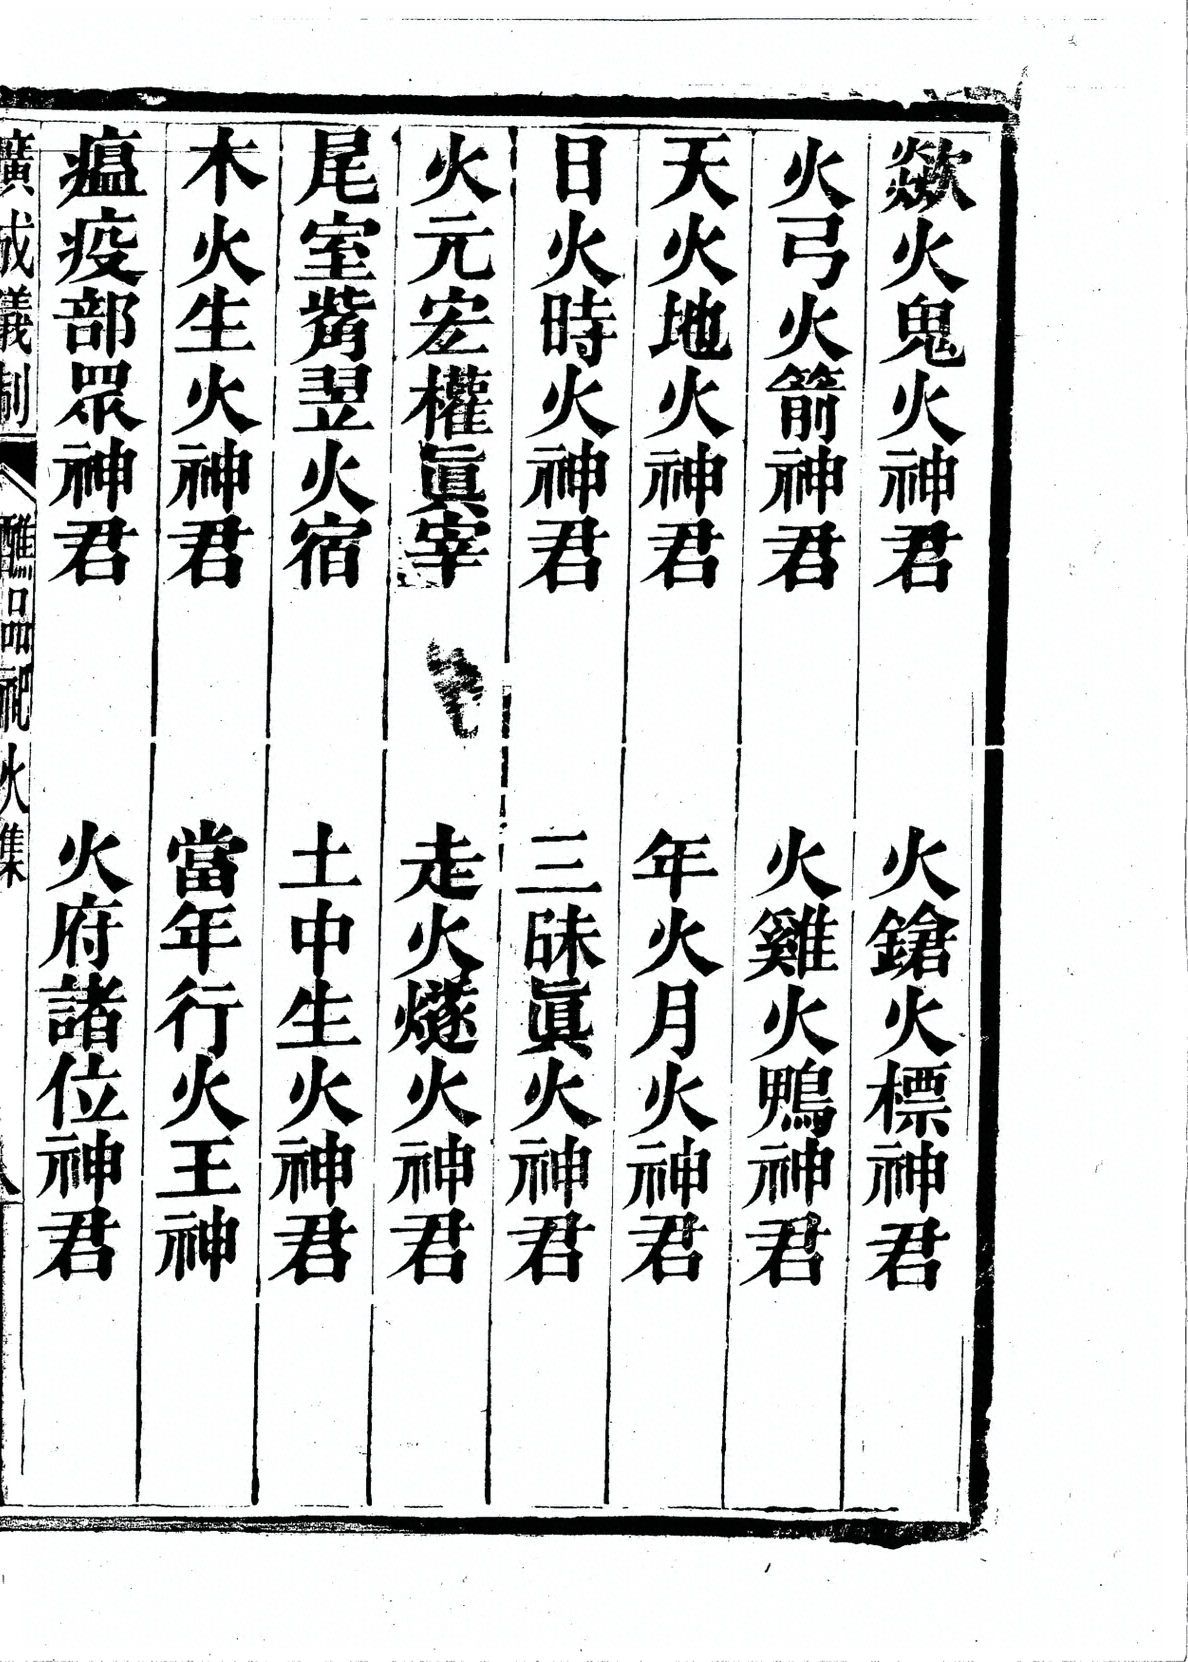 歘火鬼火神君　火鎗火標神君
火弓火箭神君　火雞火鴨神君
天火地火神君　年火月火神君
日火時火神君　三昧眞火神君
火元宏權眞宰　走火燧火神君
尾室觜翌火宿　土中生火神君
木火生火神君　當年行火王神
瘟疫部眾神君　火府諸位神君
廣成儀制　醮品祀火集